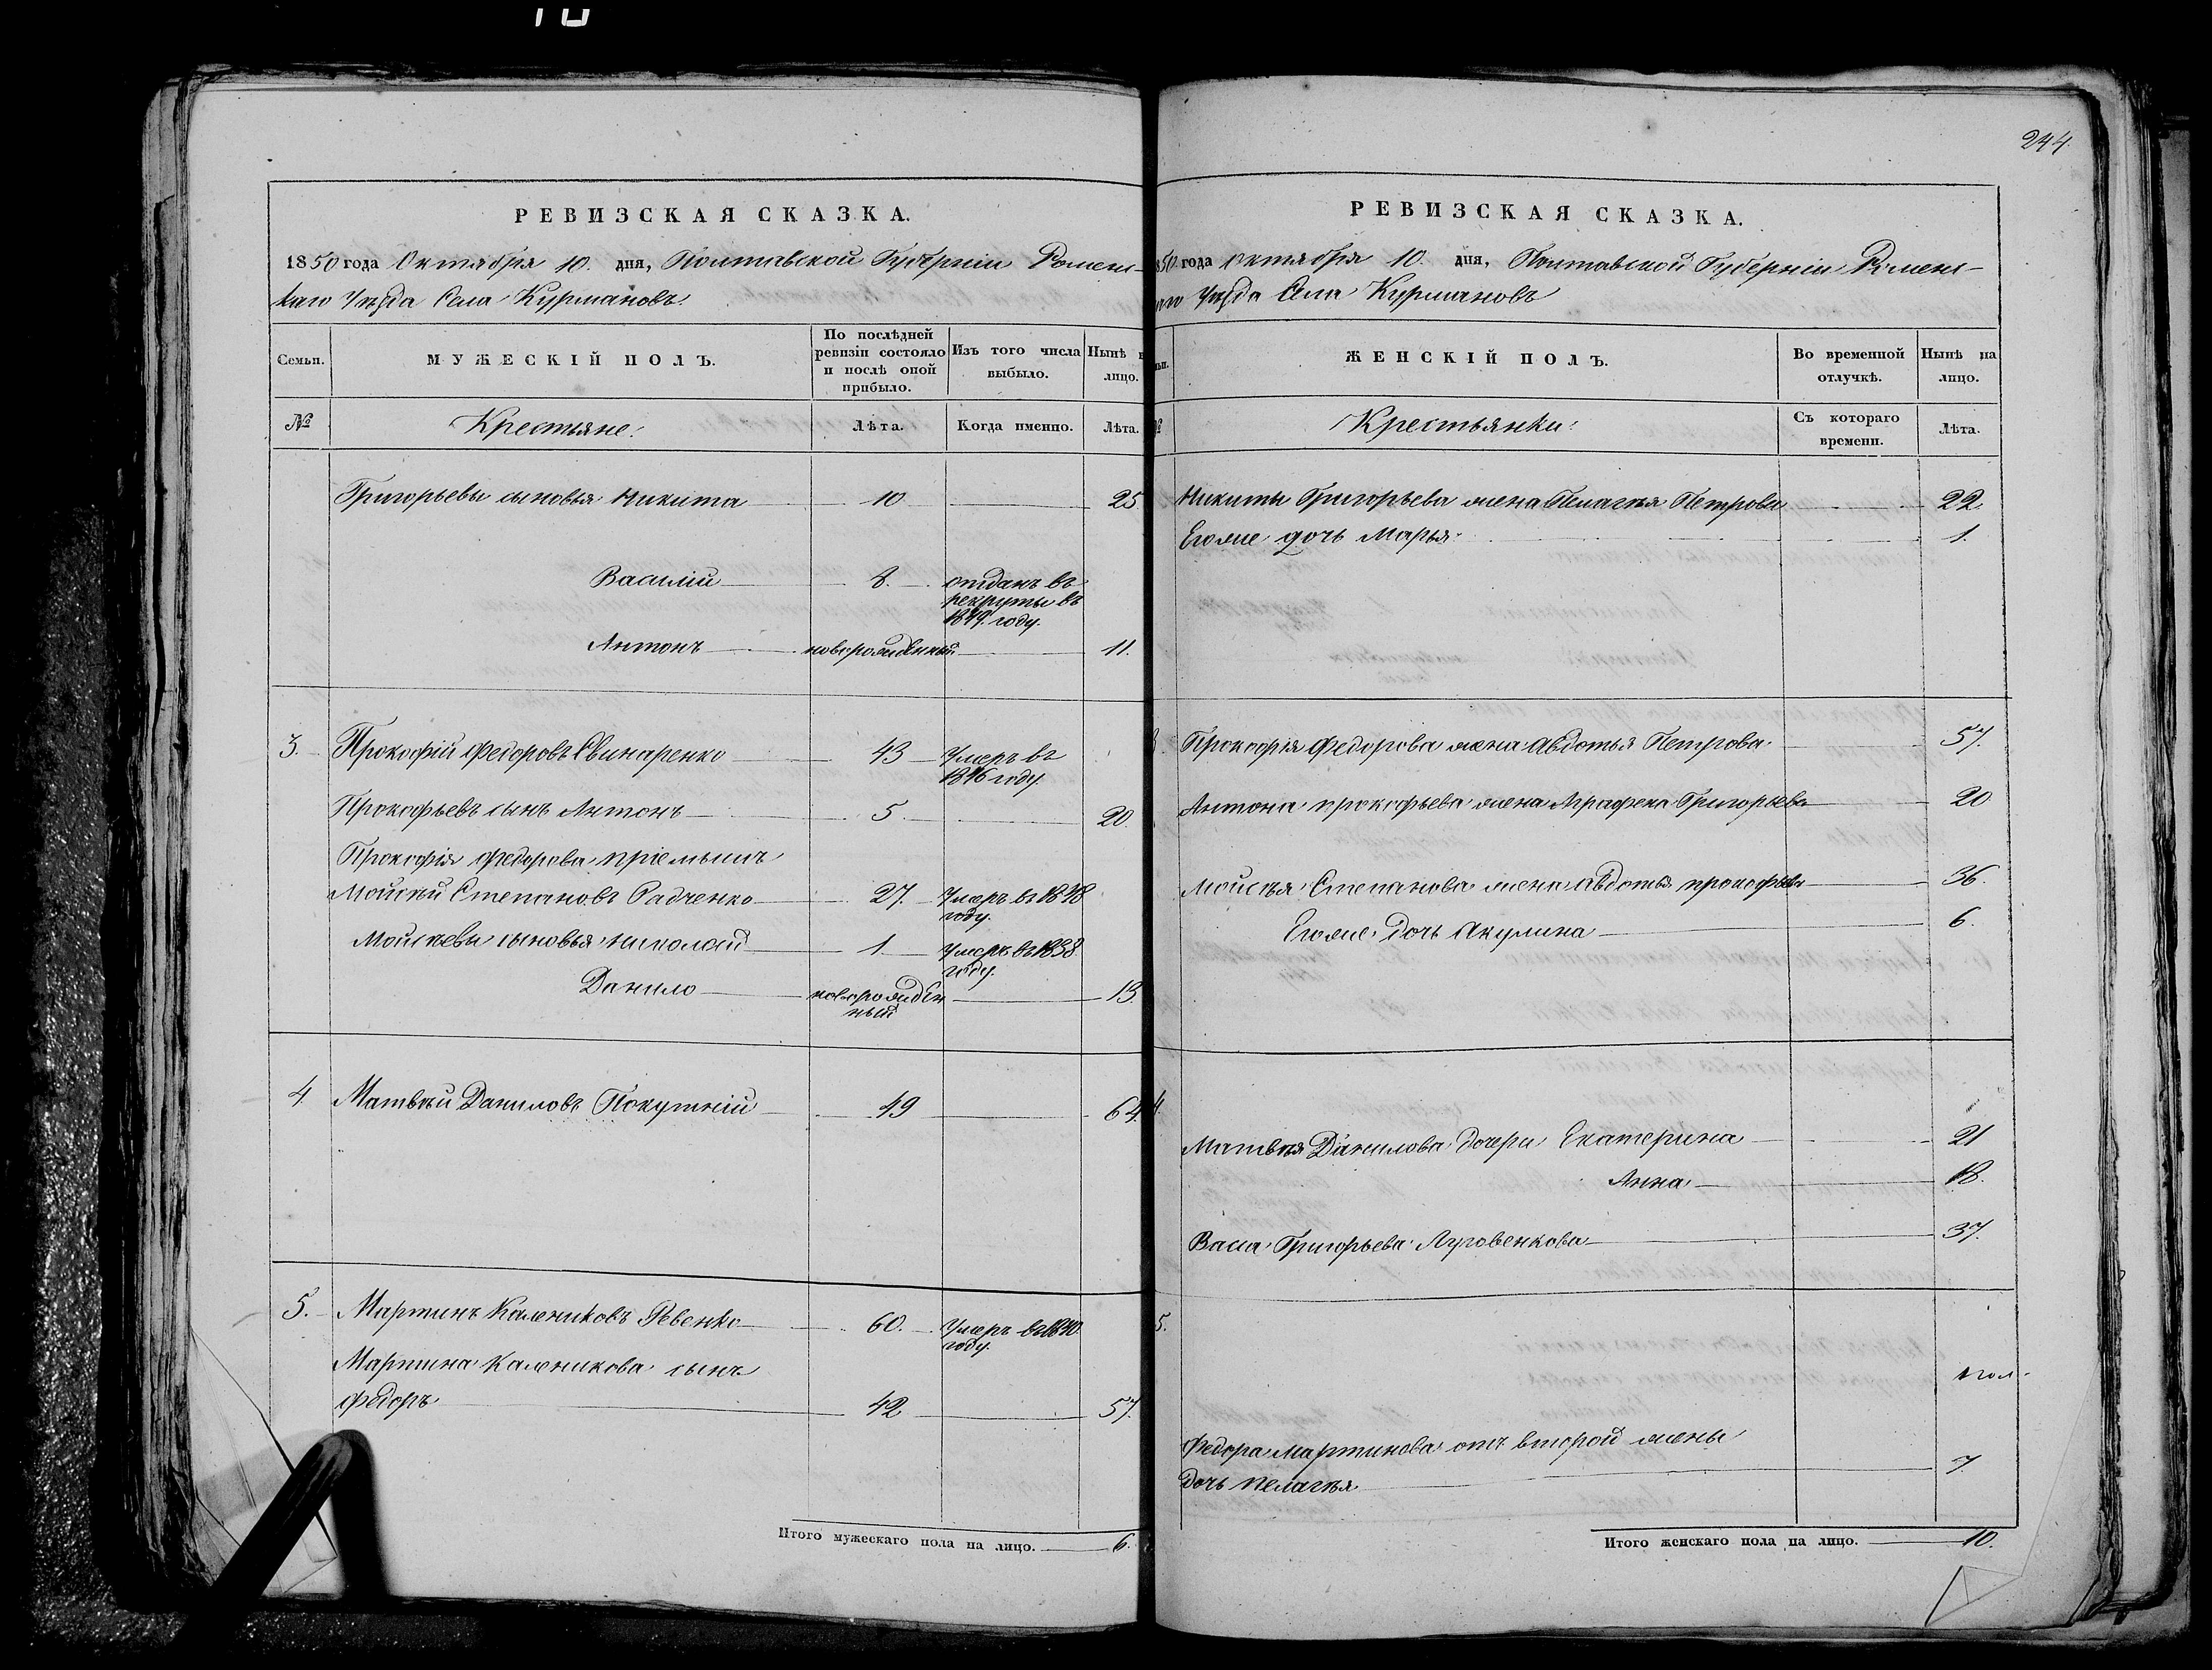 244
РЕВИЗСКАЯ СКАЗКА.
1850 года Октября 10. дня, Полтавской Губерніи Роменс-
каго Уѣзда Села Курмановъ
Семьи.
МУЖЕСКІЙ ПОЛЪ.
По послѣдней ревизіи состояло и послѣ оной прибыло.
Изъ того числа выбыло.
Нынѣ н лицо.
№
Крестьяне:
Лѣта.
Когда именно.
Лѣта.
Григорьевы сыновья Никита 10 25
Василій 8. отданъ въ
рекруты въ
1849. году.
Антонъ новорожденный 11.
3. Прокофій Федоровъ Свинаренко 43 Умеръ въ
1846 году.
Прокофьевъ сынъ Антонъ 5. 20.
Прокофія Федорова пріемышъ
Мойсѣй Степановъ Радченко 27. Умеръ въ 1848
году.
Мойсѣевы сыновья Николай 1. Умеръ въ 1838
году.
Данило новорожден 13
ный
4 Матвѣй Даниловъ Покутній 49 64.
5. Мартинъ Калениковъ Ревенко 60. Умеръ въ 1840.
году.
Мартина Каленикова сынъ
Федоръ 42 57.
Итого мужескаго пола на лицо. 6.
РЕВИЗСКАЯ СКАЗКА.
850 года октября 10. дня, Полтавской Губерніи Роменс-
аго Уѣзда Села Курмановъ
ьи.
ЖЕНСКІЙ ПОЛЪ.
Во временной отлучкѣ.
Нынѣ на лицо.
№
Крестьянки:
Съ котораго времени.
Лѣта.
Никиты Григорьева жена Пелагѣя Петрова 22.
Егоже дочь Марья 1.
3. Прокофія Федорова жена Авдотья Петрова 57.
Антона прокофьева жена Аграфена Григорьева 20
Мойсѣя Степанова жена Авдотья прокофьева 36.
Егоже дочь Акулина 6.
4.
Матвѣя Данилова дочери Екатерина 21
Анна 18.
Васса Григорьева Луговенкова 37.
5.
Федора мартинова отъ второй жены
дочь пелагѣя 7.
Итого женскаго пола на лицо. 10.